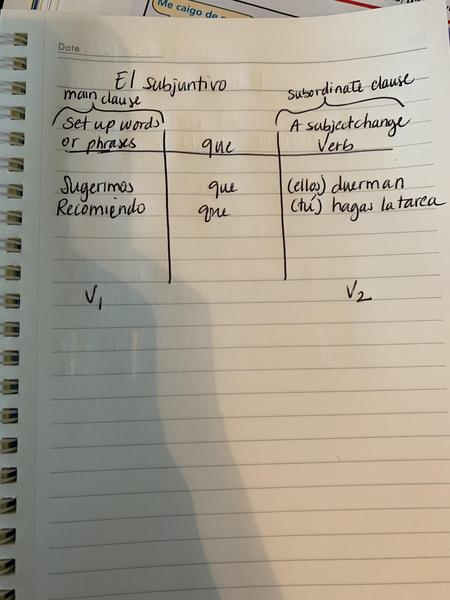 Me caigo de
Date
El subjuntivo
main clause
subordinate clause
Set up words
or phrases
que
A subject change
Verb
Sugerimos que (ellos) duerman
Recomiendo que (tú) hagas la tarea
V1 V2